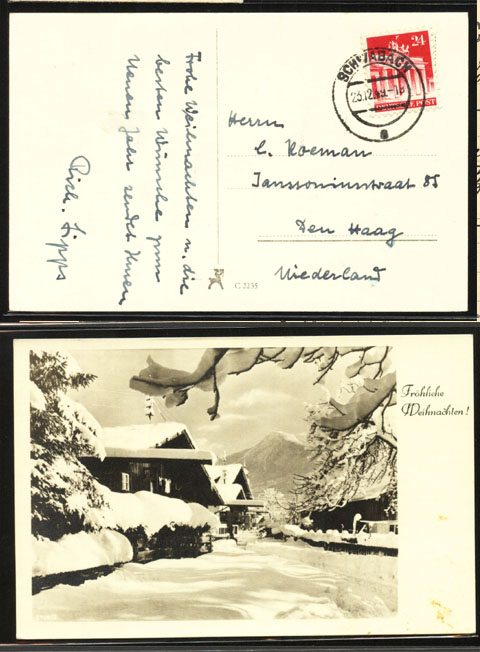 Frohe Weihnachten u. die
besten Wünsche zum
Neuen Jahr sendet Ihnen
Rich. Lipps
24
SCHWABACH
POST
Herrn
C. Koeman
Janssoniusstraat 85
Den Haag
Niederland
C 2235
Fröhliche
Weihnachten!